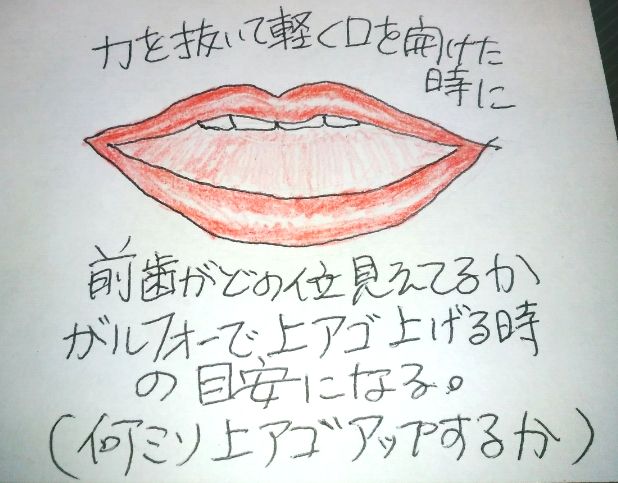 力を抜いて軽く口を開けた
時に
前歯がどの位見えてるか
がルフォーで、上アゴ上げる時
の目安になる。
(何ミリ上アゴアップするか)